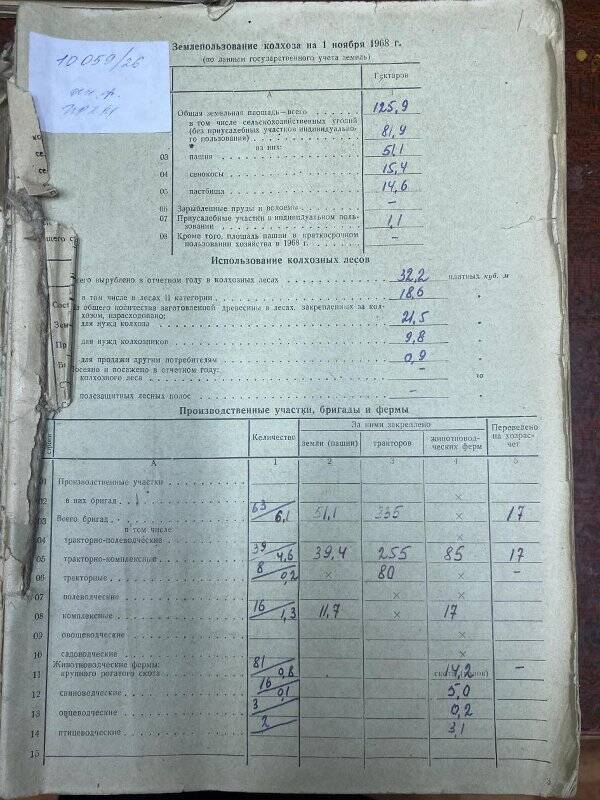 10059/26
Землепользование колхоза на 1 ноября 1968 г.
(по данным государственного учета земель)
Гектаров
А 1
Общая земельная площадь—всего 125,9
в том числе сельскохозяйственных угодий
(без приусадебных участков индивидуально-
го пользования) 81,9
из них:
03 пашня 51,1
04 сенокосы 15,4
05 пастбища 14,6
06 Зарыбленные пруды и водоемы –
07 Приусадебные участки в индивидуальном поль-
зовании 1,1
08 Кроме того, площадь пашни в краткосрочном
пользовании хозяйства в 1968 г. –
Использование колхозных лесов
его вырублено в отчетном году в колхозных лесах 32,2 платных куб. м
в том числе в лесах II категории 18,6 "
общего количества заготовленной древесины в лесах, закрепленных за кол-
хозом, израсходовано:
для нужд колхоза 21,5 "
для нужд колхозников 9,8 "
для продажи другим потребителям 0,9 "
осеяно и посажено в отчетном году:
колхозного леса – га
полезащитных лесных полос – "
Производственные участки, бригады и фермы
Количество За ними закреплено Переведено на хозрас-чет
земли (пашни) тракторов животновод-ческих ферм
А 1 2 3 4 5
01 Производственные участки
02 в них бригад ×
03 Всего бригад 63/6,1 51,1 335 × 17
в том числе
04 тракторно-полеводческие ×
05 тракторно-комплексные 39/4,6 39,4 255 85 17
06 тракторные 8/0,2 × 80 –
07 полеводческие × ×
08 комплексные 16/1,3 11,7 × 17
09 овощеводческие ×
10 садоводческие ×
Животноводческие фермы:
11 крупного рогатого скота 81/0,8 14,2 –
12 свиноводческие 16/0,1 5,0
13 овцеводческие 3/ 0,2
14 птицеводческие 2/ 3,1
15
3